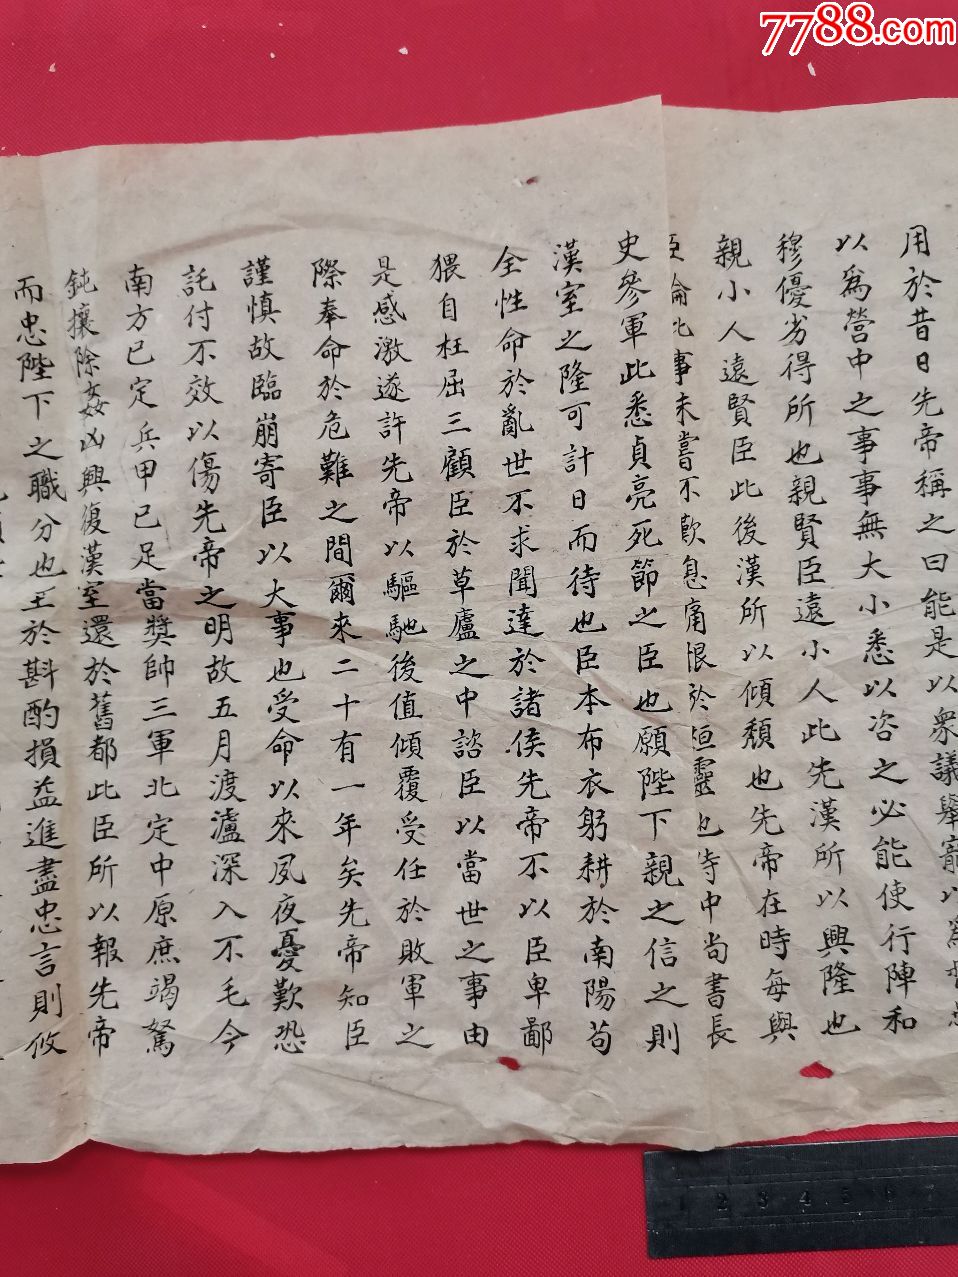 7788.com
用於昔日先帝稱之曰能是以衆議舉寵以爲督
以爲營中之事事無大小悉以咨之必能使行陣和
穆優劣得所也親賢臣遠小人此先漢所以興隆也
親小人遠賢臣此後漢所以傾頹也先帝在時每與
臣論此事未嘗不歎息痛恨於桓靈也侍中尚書長
史參軍此悉貞亮死節之臣也願陛下親之信之則
漢室之隆可計日而待也臣本布衣躬耕於南陽苟
全性命於亂世不求聞達於諸侯先帝不以臣卑鄙
猥自枉屈三顧臣於草廬之中諮臣以當世之事由
是感激遂許先帝以驅馳後值傾覆受任於敗軍之
際奉命於危難之間爾來二十有一年矣先帝知臣
謹慎故臨崩寄臣以大事也受命以來夙夜憂歎恐
託付不效以傷先帝之明故五月渡瀘深入不毛今
南方已定兵甲已足當獎帥三軍北定中原庶竭駑
鈍攘除姦凶興復漢室還於舊都此臣所以報先帝
而忠陛下之職分也至於斟酌損益進盡忠言則攸
1 2 3 4 5 6